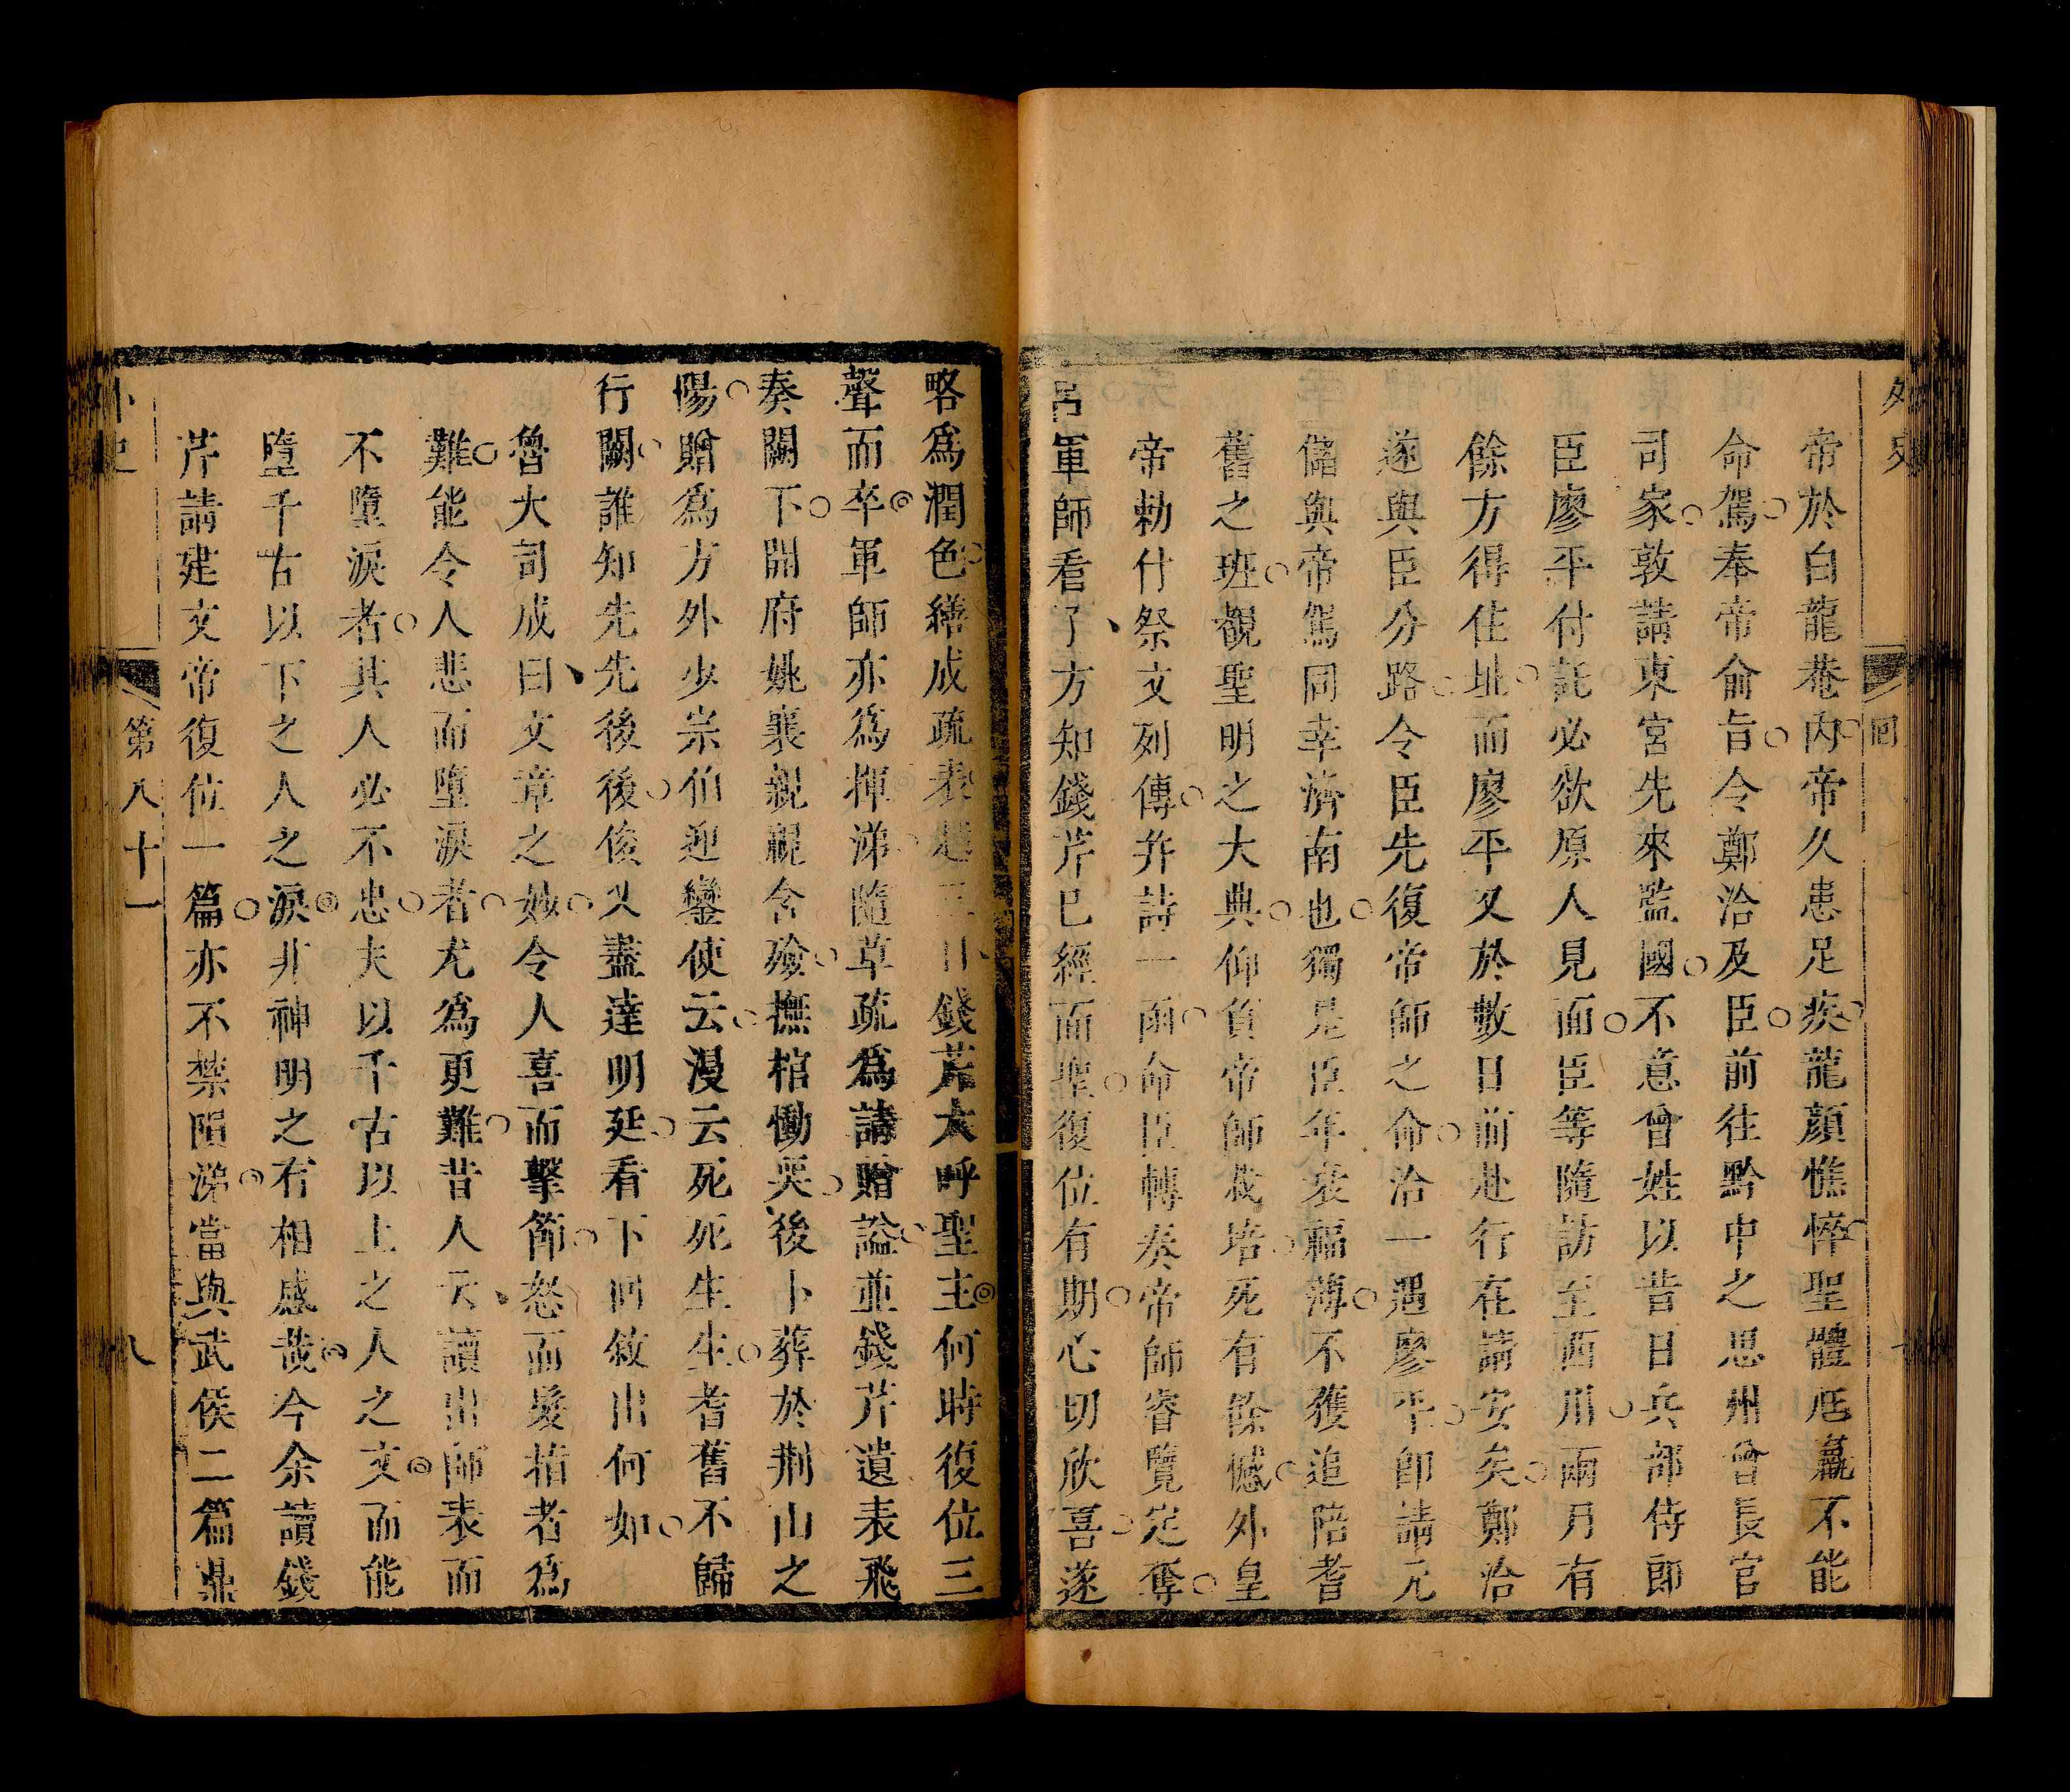 外史
回
帝於白龍菴內帝久患足疾龍顏憔悴聖體尫羸不能
命駕奉帝俞旨令鄭洽及臣前往黔中之思州曾長官
司家敦請東宮先來監國不意曾姓以昔日兵部侍郎
臣廖平付託必欲原人見面臣等隨訪至西川兩月有
餘方得住址而廖平又於數日前赴行在請安矣鄭洽
遂與臣分路令臣先復帝師之命洽一遇廖平卽請元
儲與帝駕同幸濟南也獨是臣年衰福薄不獲追陪耆
舊之班覩聖明之大典仰負帝師栽培死有餘憾外皇
帝勅什祭文列傳并詩一函命臣轉奏帝師睿覽定奪
呂軍師看了方知錢芹已經面聖復位有期心切欣喜遂
略爲潤色繕成疏表越三日錢芹大呼聖主何時復位三
聲而卒軍師亦爲揮涕隨草疏爲請贈謚並錢芹遺表飛
奏闕下開府姚襄親視含殮撫棺慟哭後卜葬於荆山之
陽贈爲方外少宗伯迎鑾使云漫云死死生生耆舊不歸
行闕誰知先先後後俊乂盡達明廷看下回敘出何如
魯大司成曰文章之妙令人喜而擊節怒而髮指者爲
難能令人悲而墮淚者尤爲更難昔人云讀出師表而
不墮淚者其人必不忠夫以千古以上之人之文而能
墮千古以下之人之淚非神明之有相感哉今余讀錢
芹請建文帝復位一篇亦不禁隕涕當與武侯二篇鼎
外史
第八十一
八